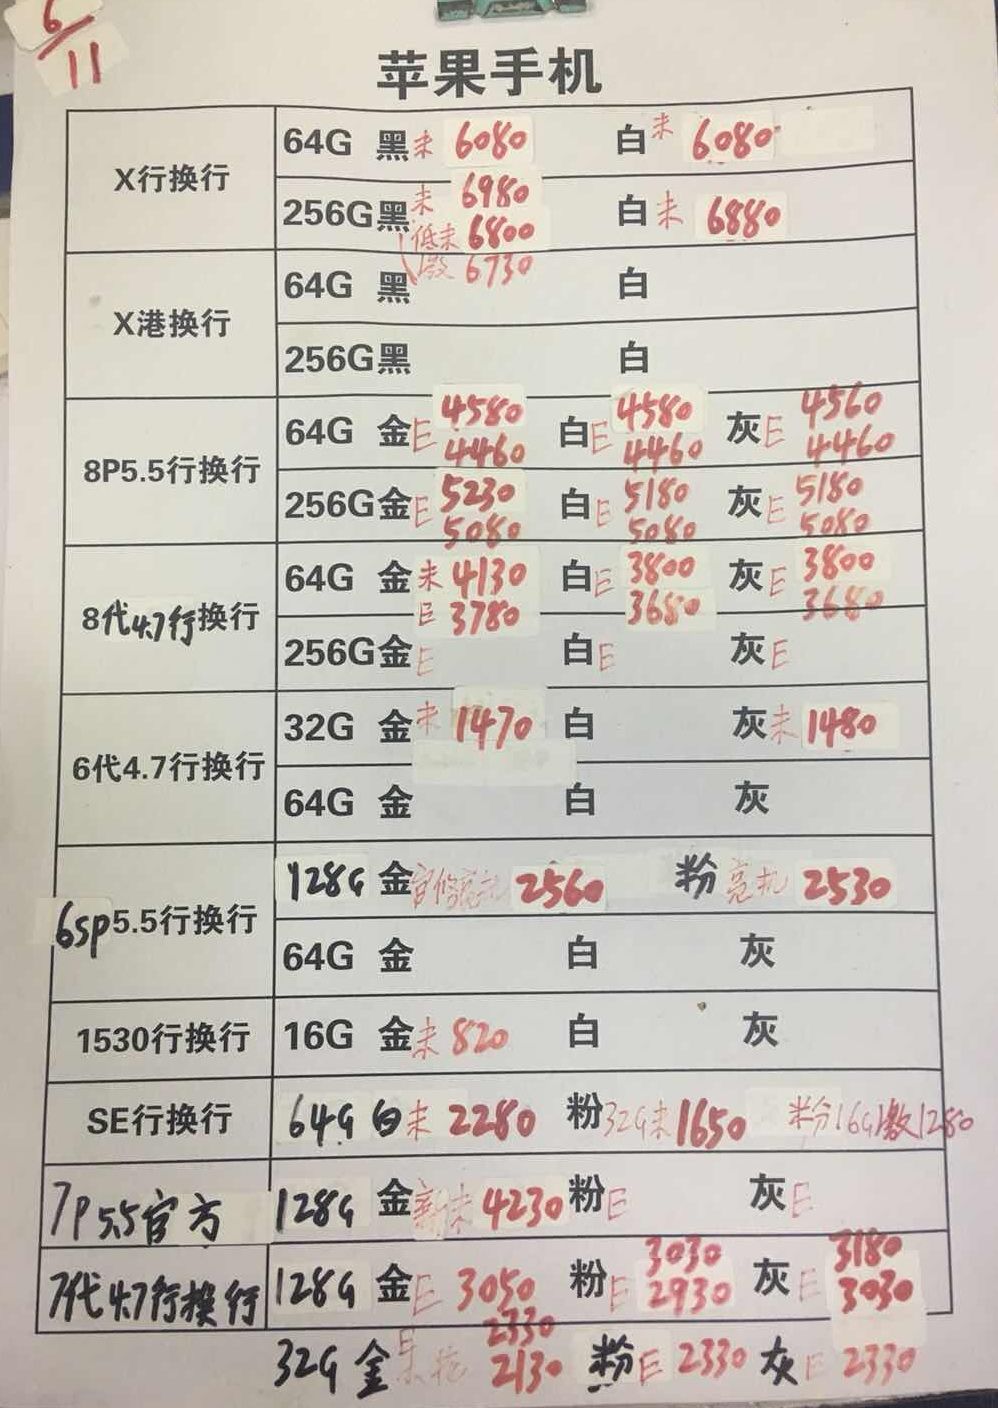 6/11
苹果手机
X行换行
64G 黑未 6080 白未 6080
256G黑未 6980 白未 6880
低未 6800
激 6730
X港换行
64G 黑 白
256G黑 白
8P5.5行换行
64G 金E 4580 4460 白E 4580 4460 灰E 4560 4460
256G金E 5230 5080 白E 5180 5080 灰E 5180 5080
8代4.7行换行
64G 金未 4130 E 3780 白E 3800 3680 灰E 3800 3680
256G金E 白E 灰E
6代4.7行换行
32G 金未 1470 白 灰未 1480
64G 金 白 灰
6sp5.5行换行
128G 金官修亮机 2560 粉亮机 2530
64G 金 白 灰
1530行换行
16G 金未 820 白 灰
SE行换行
64G 白未 2280 粉32G未1650 粉16G激1280
7P5.5官方
128G 金新未 4230 粉E 灰E
7代4.7行换行
128G 金E 3050 粉E 3030 2930 灰E 3180 3030
32G 金 2330 2130 粉E 2330 灰E 2330